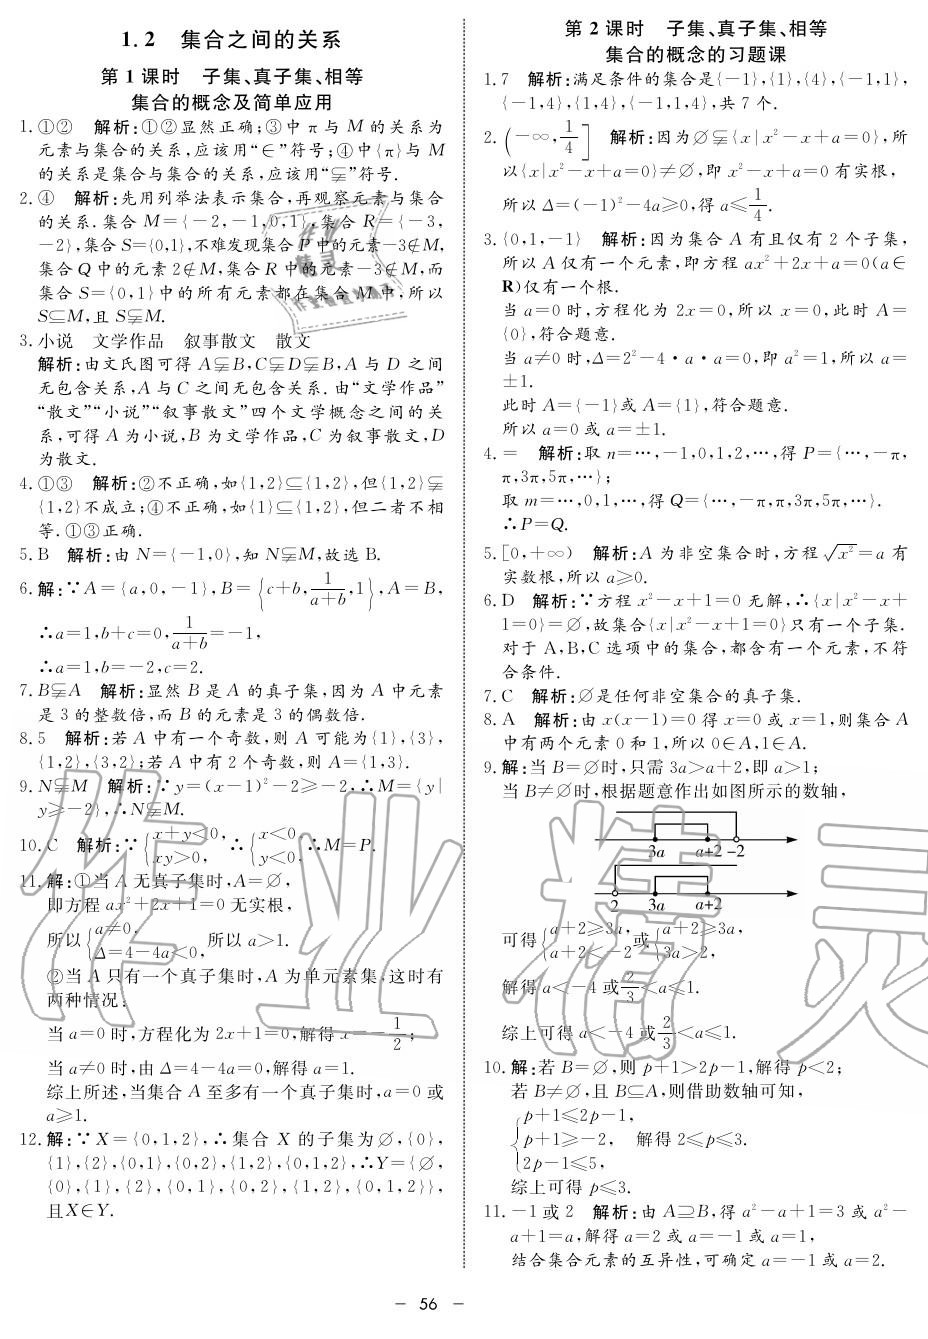 1.2 集合之间的关系
第1课时 子集、真子集、相等
集合的概念及简单应用
1.①② 解析:①②显然正确;③中π与M的关系为
元素与集合的关系,应该用“∈”符号;④中{π}与M
的关系是集合与集合的关系,应该用“⫋”符号.
2.④ 解析:先用列举法表示集合,再观察元素与集合
的关系.集合M={-2,-1,0,1},集合R={-3,
-2},集合S={0,1},不难发现集合P中的元素-3∉M,
集合Q中的元素2∉M,集合R中的元素-3∉M,而
集合S={0,1}中的所有元素都在集合M中,所以
S⊆M,且S⫋M.
3.小说 文学作品 叙事散文 散文
解析:由文氏图可得A⫋B,C⫋D⫋B,A与D之间
无包含关系,A与C之间无包含关系.由“文学作品”
“散文”“小说”“叙事散文”四个文学概念之间的关
系,可得A为小说,B为文学作品,C为叙事散文,D
为散文.
4.①③ 解析:②不正确,如{1,2}⊆{1,2},但{1,2}⫋
{1,2}不成立;④不正确,如{1}⊆{1,2},但二者不相
等.①③正确.
5.B 解析:由N={-1,0},知N⫋M,故选B.
6.解:∵A={a,0,-1},B={c+b,1/(a+b),1},A=B,
∴a=1,b+c=0,1/(a+b)=-1,
∴a=1,b=-2,c=2.
7.B⫋A 解析:显然B是A的真子集,因为A中元素
是3的整数倍,而B的元素是3的偶数倍.
8.5 解析:若A中有一个奇数,则A可能为{1},{3},
{1,2},{3,2};若A中有2个奇数,则A={1,3}.
9.N⫋M 解析:∵y=(x-1)²-2≥-2,∴M={y|
y≥-2},∴N⫋M.
10.C 解析:∵{x+y<0,xy>0, ∴{x<0,y<0,∴M=P.
11.解:①当A无真子集时,A=∅,
即方程ax²+2x+1=0无实根,
所以{a≠0,Δ=4-4a<0, 所以a>1.
②当A只有一个真子集时,A为单元素集,这时有
两种情况:
当a=0时,方程化为2x+1=0,解得x=-1/2;
当a≠0时,由Δ=4-4a=0,解得a=1.
综上所述,当集合A至多有一个真子集时,a=0或
a≥1.
12.解:∵X={0,1,2},∴集合X的子集为∅,{0},
{1},{2},{0,1},{0,2},{1,2},{0,1,2},∴Y={∅,
{0},{1},{2},{0,1},{0,2},{1,2},{0,1,2}},
且X∈Y.
第2课时 子集、真子集、相等
集合的概念的习题课
1.7 解析:满足条件的集合是{-1},{1},{4},{-1,1},
{-1,4},{1,4},{-1,1,4},共7个.
2.(-∞,1/4] 解析:因为∅⫋{x|x²-x+a=0},所
以{x|x²-x+a=0}≠∅,即x²-x+a=0有实根,
所以Δ=(-1)²-4a≥0,得a≤1/4.
3.{0,1,-1} 解析:因为集合A有且仅有2个子集,
所以A仅有一个元素,即方程ax²+2x+a=0(a∈
R)仅有一个根.
当a=0时,方程化为2x=0,所以x=0,此时A=
{0},符合题意.
当a≠0时,Δ=2²-4·a·a=0,即a²=1,所以a=
±1.
此时A={-1}或A={1},符合题意.
所以a=0或a=±1.
4.= 解析:取n=…,-1,0,1,2,…,得P={…,-π,
π,3π,5π,…};
取m=…,0,1,…,得Q={…,-π,π,3π,5π,…}.
∴P=Q.
5.[0,+∞) 解析:A为非空集合时,方程√x²=a有
实数根,所以a≥0.
6.D 解析:∵方程x²-x+1=0无解,∴{x|x²-x+
1=0}=∅,故集合{x|x²-x+1=0}只有一个子集.
对于A,B,C选项中的集合,都含有一个元素,不符
合条件.
7.C 解析:∅是任何非空集合的真子集.
8.A 解析:由x(x-1)=0得x=0或x=1,则集合A
中有两个元素0和1,所以0∈A,1∈A.
9.解:当B=∅时,只需3a>a+2,即a>1;
当B≠∅时,根据题意作出如图所示的数轴,
3a a+2 -2
2 3a a+2
可得{a+2≥3a,a+2<-2或{a+2≥3a,3a>2,
解得a<-4或2/3<a≤1.
综上可得a<-4或2/3<a≤1.
10.解:若B=∅,则p+1>2p-1,解得p<2;
若B≠∅,且B⊆A,则借助数轴可知,
{p+1≤2p-1,
p+1≥-2, 解得2≤p≤3.
2p-1≤5,
综上可得p≤3.
11.-1或2 解析:由A⊇B,得a²-a+1=3或a²-
a+1=a,解得a=2或a=-1或a=1,
结合集合元素的互异性,可确定a=-1或a=2.
- 56 -
作业精灵